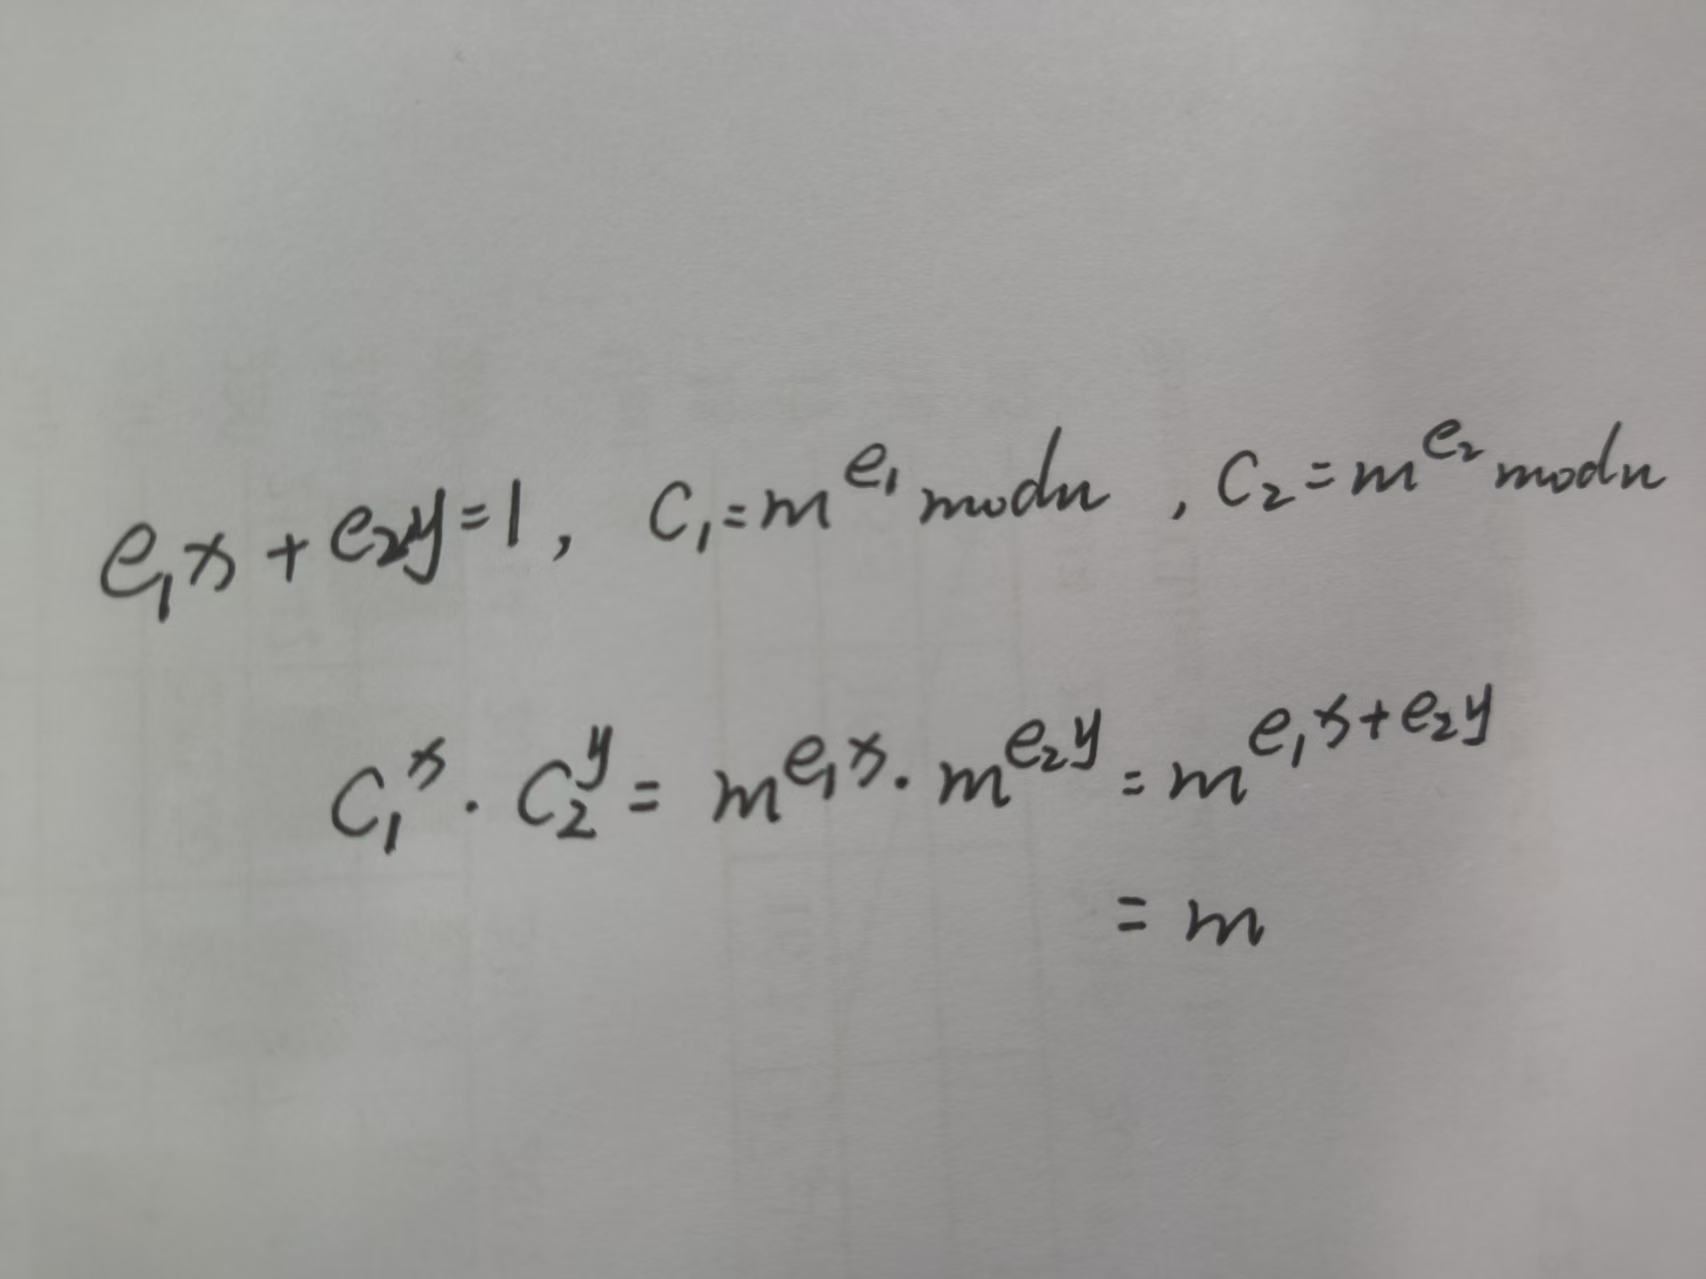 e₁x + e₂y = 1, C₁ = m^e₁ mod n, C₂ = m^e₂ mod n
C₁^x · C₂^y = m^(e₁x) · m^(e₂y) = m^(e₁x+e₂y)
= m